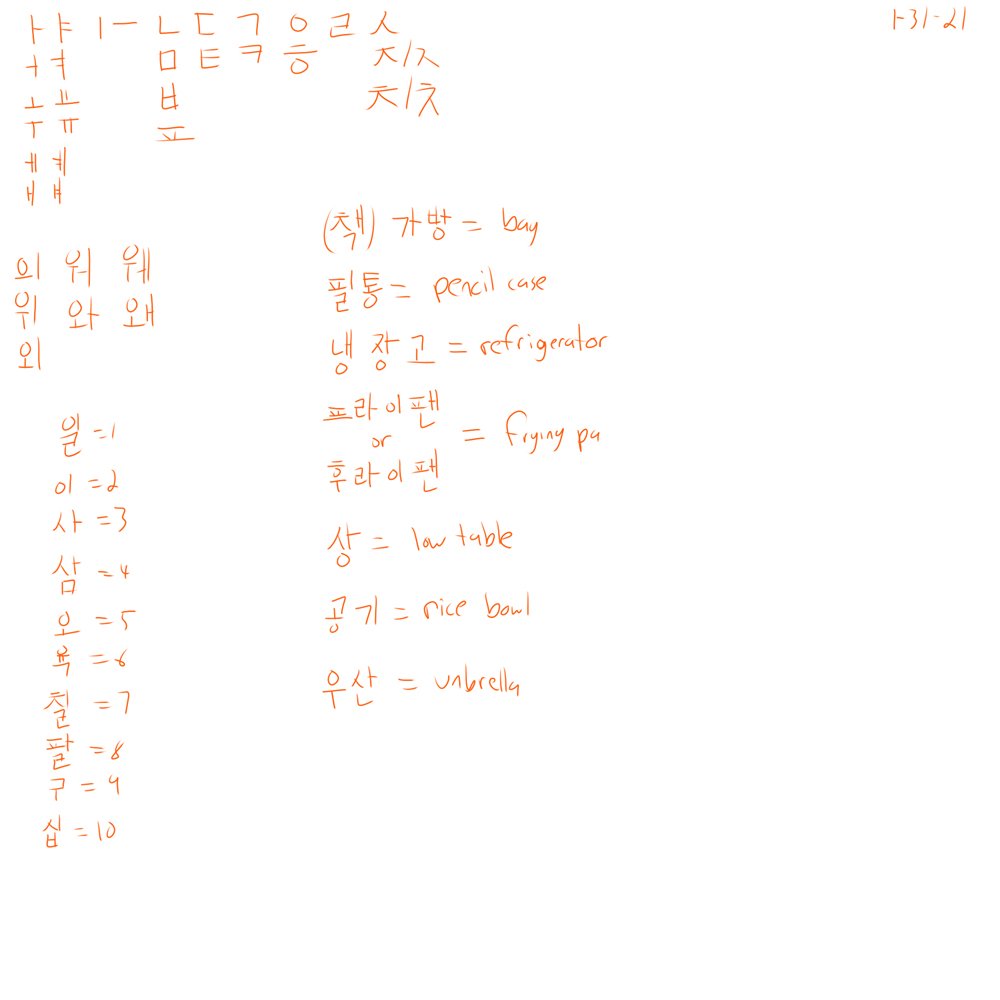 ㅏㅑ ㅣㅡ ㄴㄷㄱㅇㄹㅅ
1-31-21
ㅓㅕ ㅁㅌㅋㅎ ㅈ/ㅈ
ㅗㅛ ㅂ ㅊ/ㅊ
ㅜㅠ ㅍ
ㅔㅖ
ㅐㅒ
의 워 웨
위 와 왜
외
(책) 가방 = bag
필통 = pencil case
냉장고 = refrigerator
프라이팬
or = frying pa
후라이팬
상 = low table
공기 = rice bowl
우산 = unbrella
일 =1
이 =2
사 =3
삼 =4
오 =5
육 =6
칠 =7
팔 =8
구 =9
십 =10